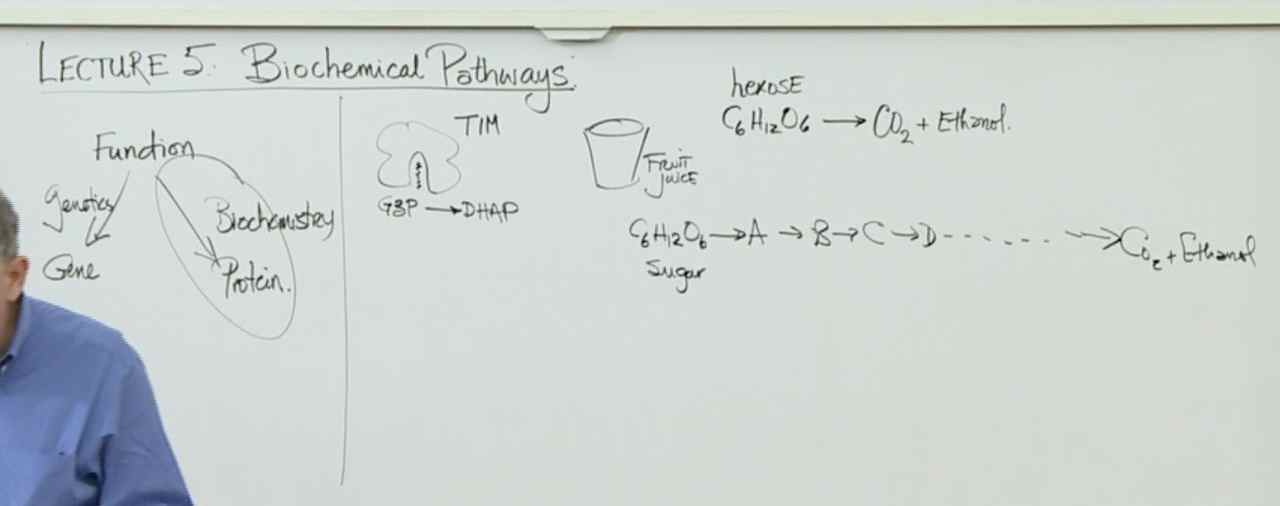 LECTURE 5. Biochemical Pathways.
Function
Genetics
Biochemistry
Gene
Protein.
TIM
G3P → DHAP
FRUIT
JUICE
hexose
C6H12O6 → CO2 + Ethanol.
C6H12O6 → A → B → C → D - - - - - - → CO2 + Ethanol
Sugar